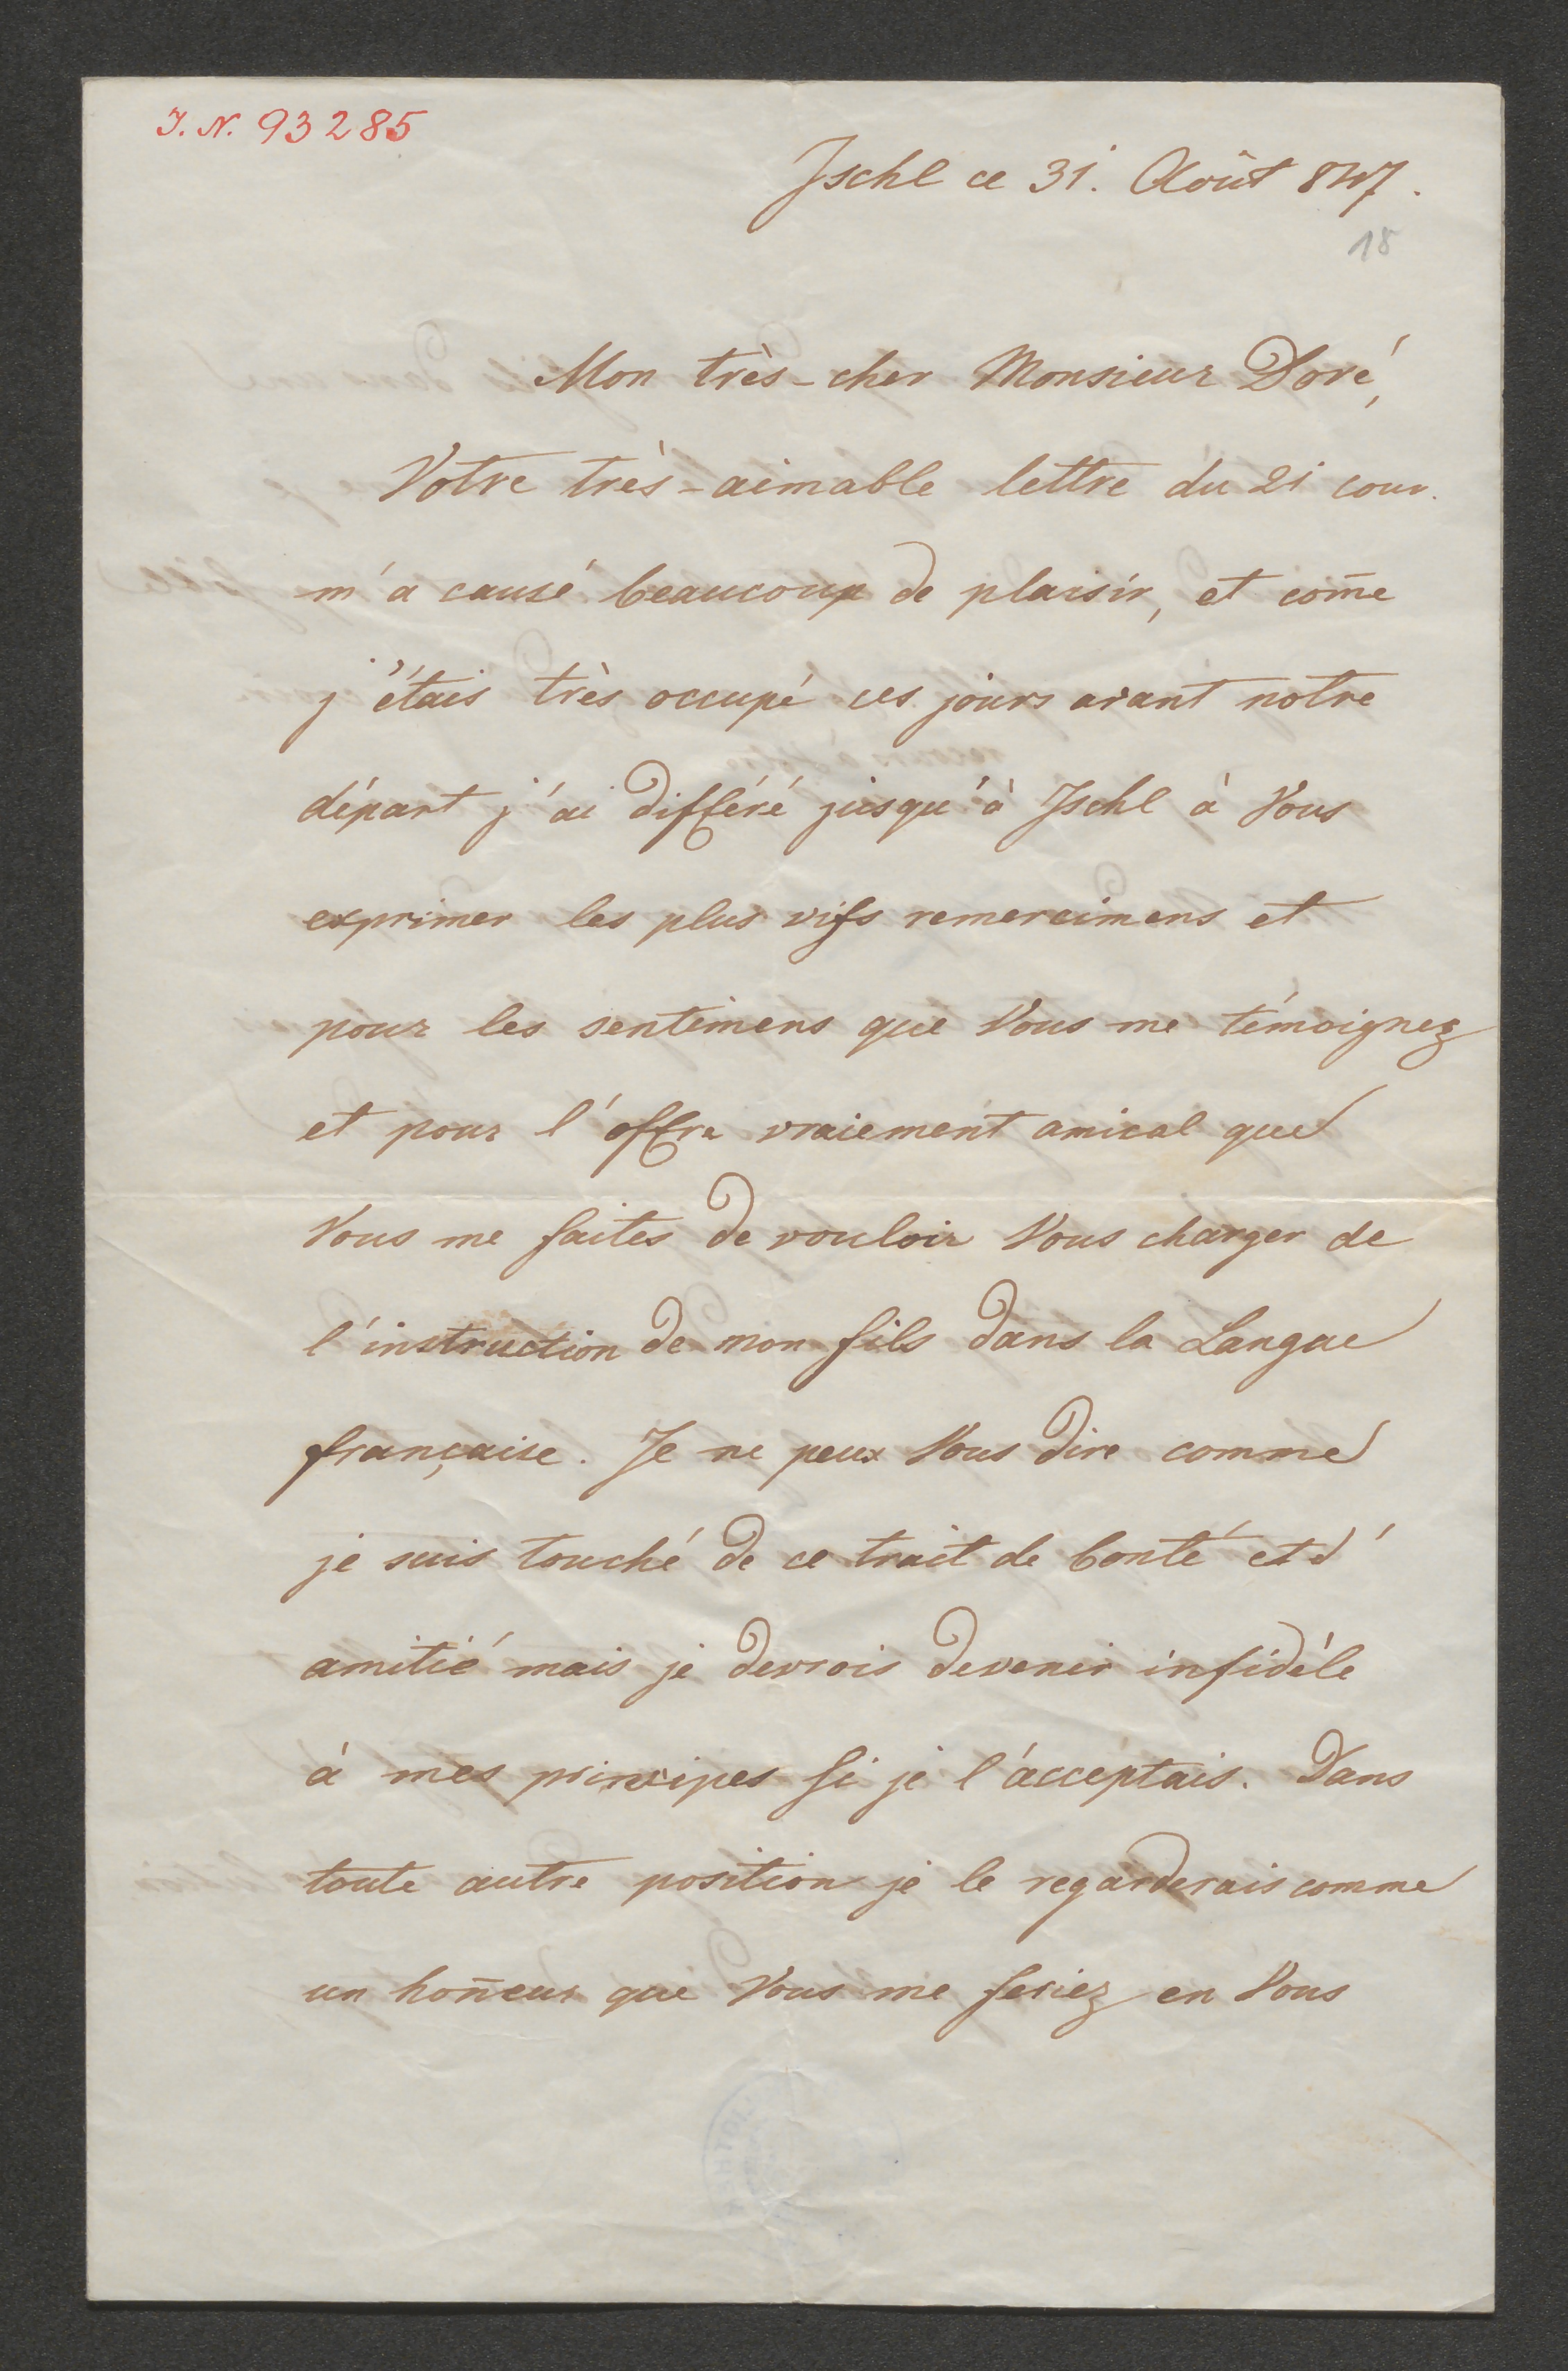 J. N. 93285
Jschl ce 31. Août 847.
18
Mon très-cher Monsieur Doré,
Votre très-aimable lettre du 21 cour.
m'a causé beaucoup de plaisir, et com̄e
j'étais très occupé ces jours avant notre
départ j'ai différé jusqu'à Jschl à Vous
exprimer les plus vifs remercimens et
pour les sentimens que Vous me témoignez
et pour l'offre vraiement amical que
Vous me faites de vouloir Vous charger de
l'instruction de mon fils dans la Langue
française. Je ne peux Vous dire comme
je suis touché de ce trait de bonté et d'
amitié mais je devrois devenir infidèle
à mes principes si je l'acceptais. Dans
toute autre position je le regarderais comme
un hon̄eur que Vous me feriez en Vous